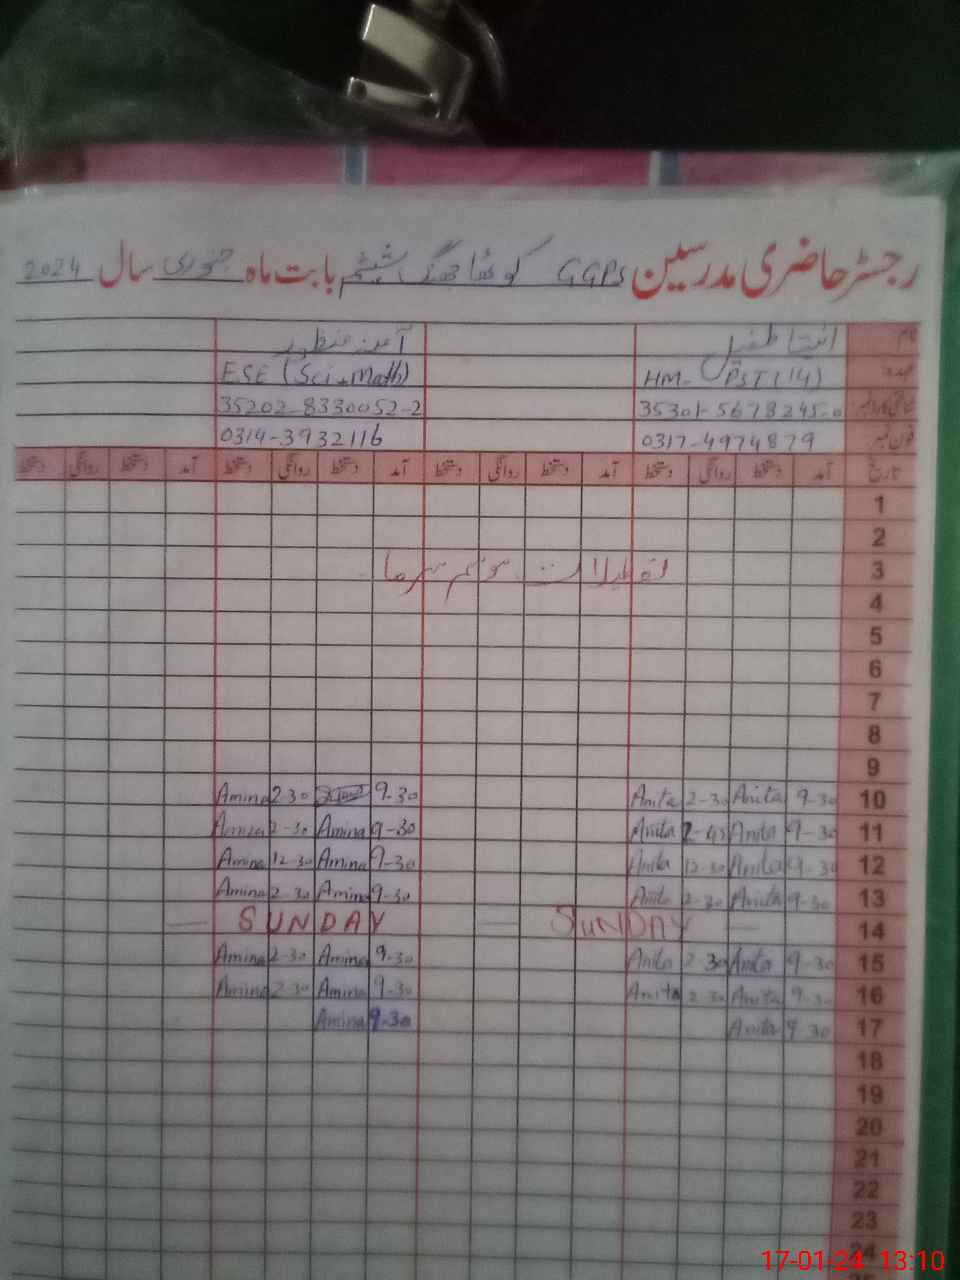 رجسٹر حاضری مدرسین GGPS کوٹھا جھنگ ششم بابت ماہ جنوری سال 2024
نام انیتا طفیل آمنہ منظور
عہدہ HM- PST (14) ESE (Sci+Math)
شناختی کارڈ نمبر 35301-5678245-0 35202-8330052-2
فون نمبر 0317-4974879 0314-3932116
تاریخ آمد دستخط روانگی دستخط آمد دستخط روانگی دستخط آمد دستخط روانگی دستخط آمد دستخط روانگی دستخط
1
2
3 تعطیلات موسم سرما
4
5
6
7
8
9
10 9-30 Anita 2-30 Anita 9-30 2-30 Amina
11 9-30 Anita 2-45 Anita 9-30 Amina 2-30 Amina
12 9-30 Anita 12-30 Anita 9-30 Amina 12-30 Amina
13 9-30 Anita 2-30 Anita 9-30 Amina 2-30 Amina
14 — SUNDAY — SUNDAY —
15 9-30 Anita 2-30 Anita 9-30 Amina 2-30 Amina
16 9-30 Anita 2-30 Anita 9-30 Amina 2-30 Amina
17 9-30 Anita 9-30 Amina
18
19
20
21
22
23
24
17-01-24 13:10